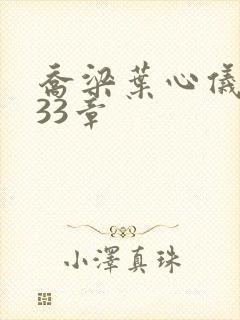 喬梁葉心儀
33章
小澤真珠